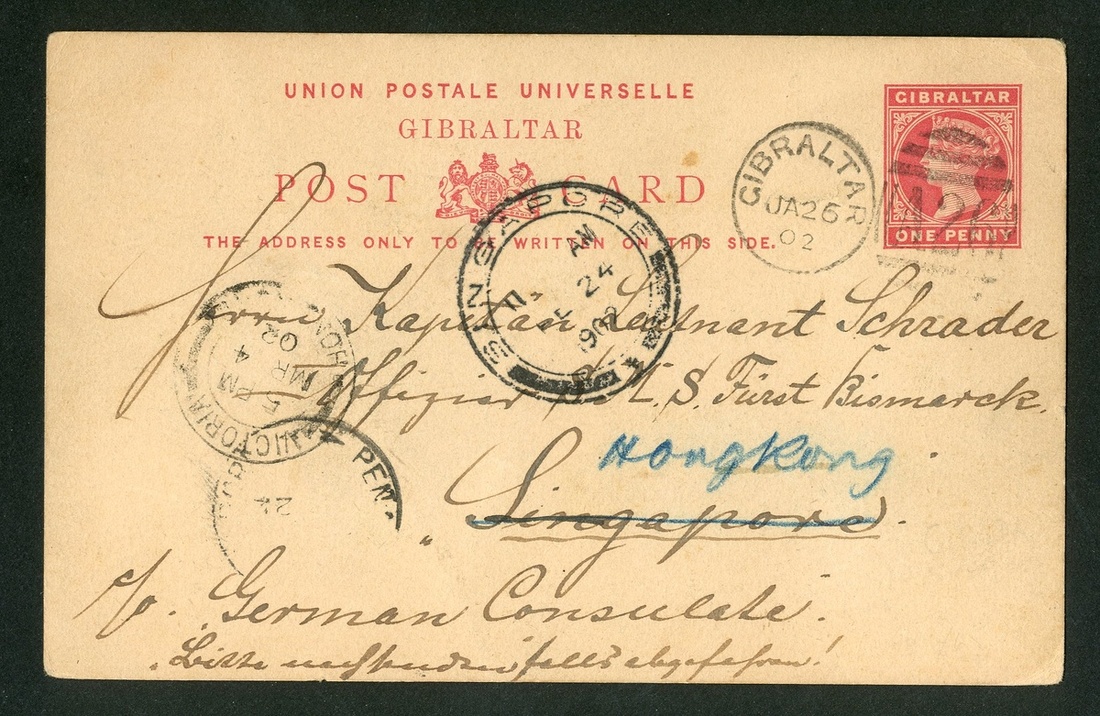 UNION POSTALE UNIVERSELLE
GIBRALTAR
POST CARD
THE ADDRESS ONLY TO BE WRITTEN ON THIS SIDE.
GIBRALTAR
ONE PENNY
GIBRALTAR
JA 26
02
SINGAPORE
AM
11
24
1902
Herrn Kapitän Leutnant Schrader
Offizier S. Fürst Bismarck.
Hongkong
Singapore.
VICTORIA HON
5 PM
MR 4
02
PEN
24
c/o. German Consulate.
Bitte nachsenden falls abgefahren!